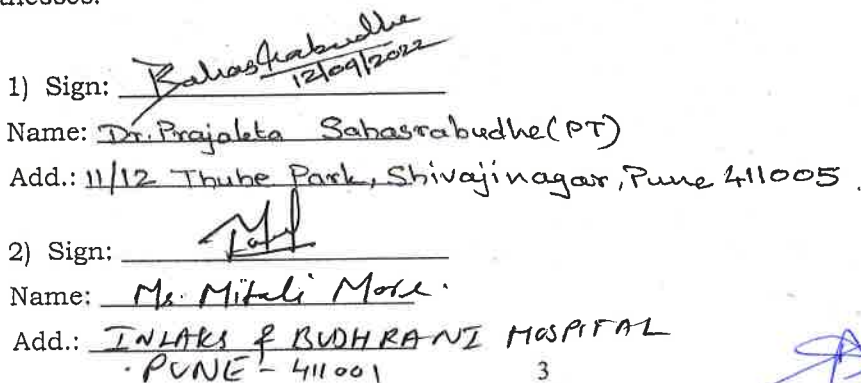 1) Sign:
12/09/2022
Name: Dr. Prajakta Sahasrabudhe (PT)
Add.: 11/12 Thube Park, Shivajinagar, Pune 411005.
2) Sign:
Name: Ms. Mitali More.
Add.: INLAKS & BUDHRANI HOSPITAL
PUNE - 411001
3